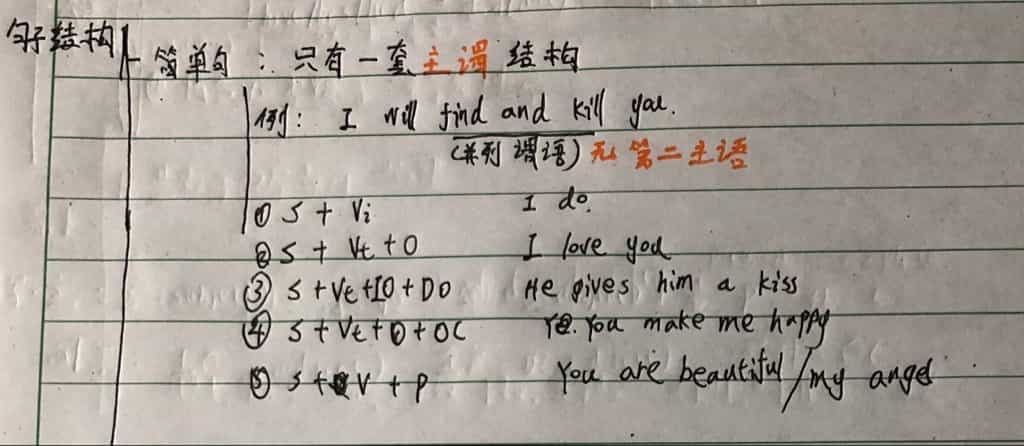 句子结构
简单句：只有一套主谓结构
例：I will find and kill you.
(并列谓语) 无第二主语
① S + Vi I do.
② S + Vt + O I love you
③ S + Vt + IO + DO He gives him a kiss
④ S + Vt + O + OC You make me happy
⑤ S + V + P You are beautiful / my angel